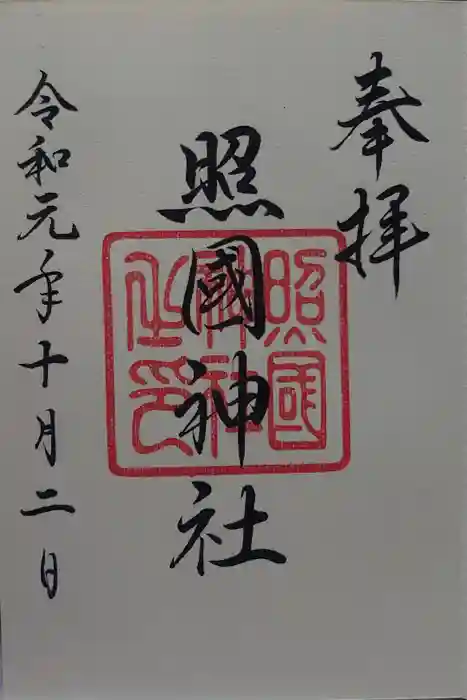 奉拝
照國神社
照國神社之印
令和元年十月二日